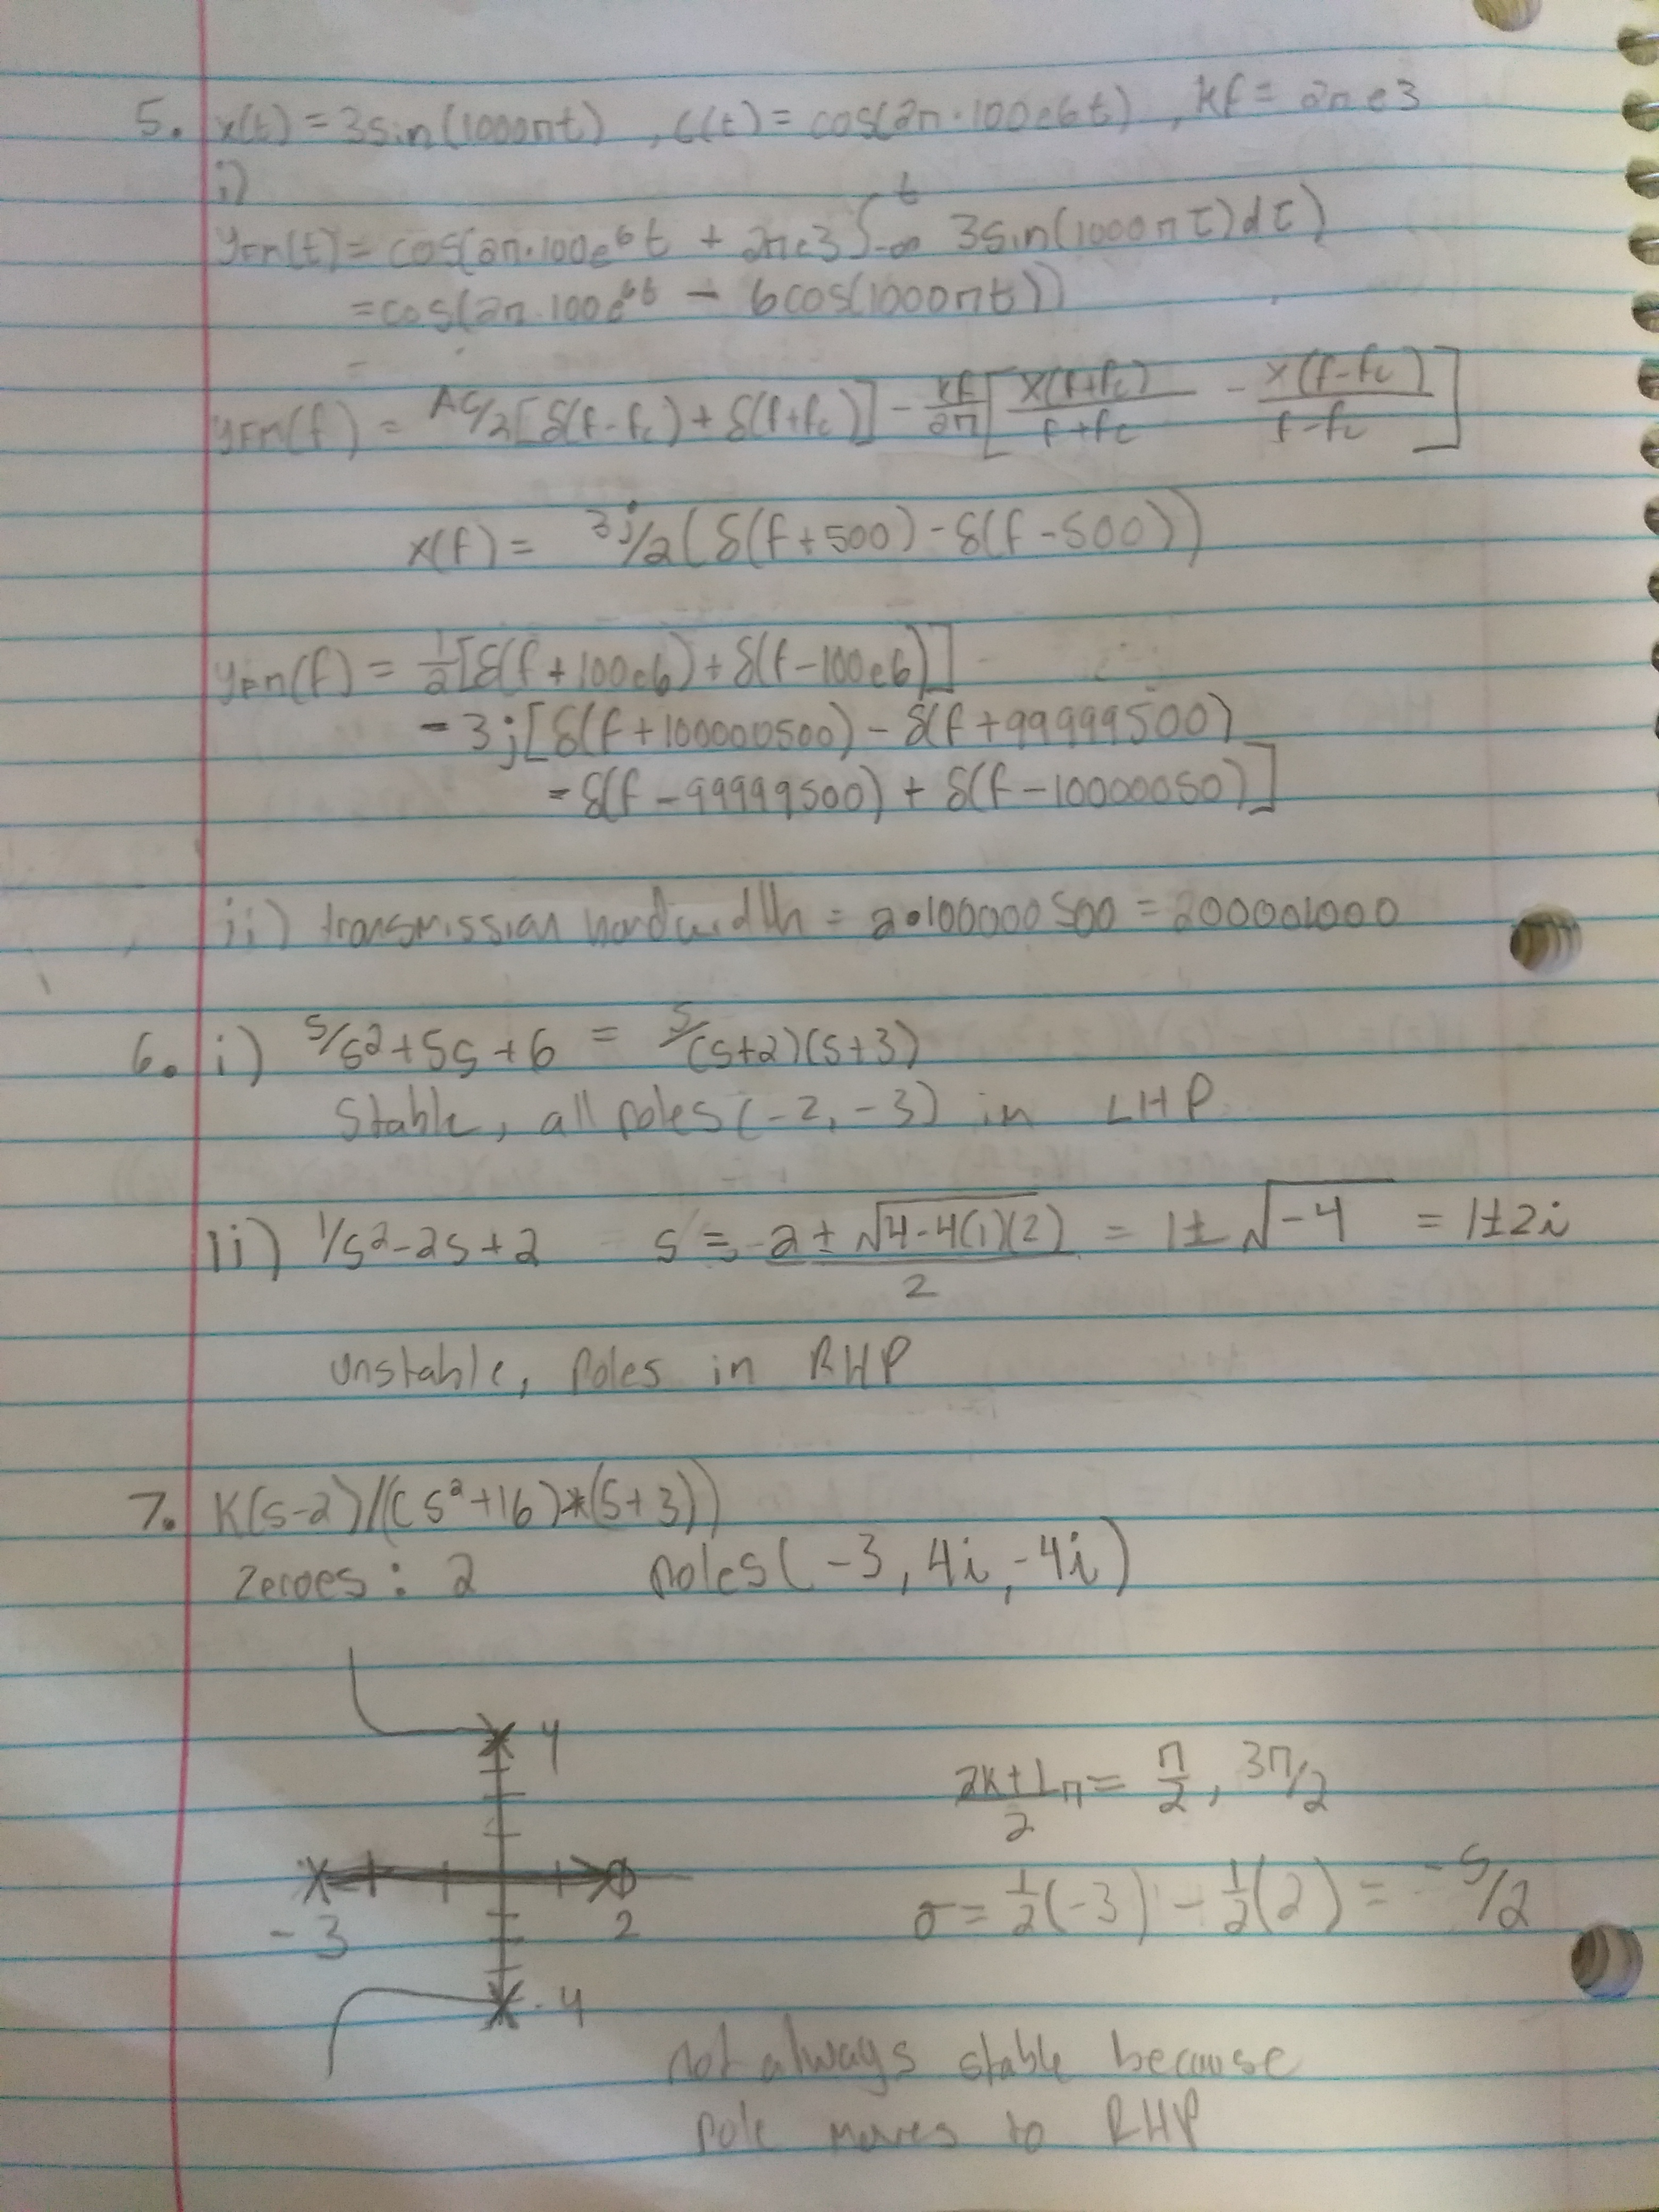 5. x(t) = 3sin(1000πt) , c(t) = cos(2π·100e6t) , kf = 2πe3
i)
yFM(t) = cos(2π·100e^6t + 2πe3∫_{-∞}^{t} 3sin(1000πτ)dτ)
= cos(2π·100e^6t − 6cos(1000πt))
yFM(f) = Ac/2[δ(f-fc) + δ(f+fc)] − kf/2π[X(f+fc)/f+fc − X(f-fc)/f-fc]
x(f) = 3j/2(δ(f+500) − δ(f-500))
yFM(f) = 1/2[δ(f+100e6) + δ(f-100e6)]
− 3j[δ(f+100000500) − δ(f+99999500)
− δ(f-99999500) + δ(f-10000050)]
ii) transmission bandwidth = 2·100000500 = 200001000
6. i) s/s²+5s+6 = s/(s+2)(s+3)
Stable, all poles(-2, -3) in LHP
ii) 1/s²-2s+2 s = -2 ± √4-4(1)(2) / 2 = 1±√-4 = 1±2i
unstable, poles in RHP
7. K(s-2)/((s²+16)*(s+3))
Zeroes: 2 poles(-3, 4i, -4i)
4
2k+1/2 π = π/2, 3π/2
-3 2
σ = 1/2(-3) − 1/2(2) = -5/2
-4
not always stable because
pole moves to RHP